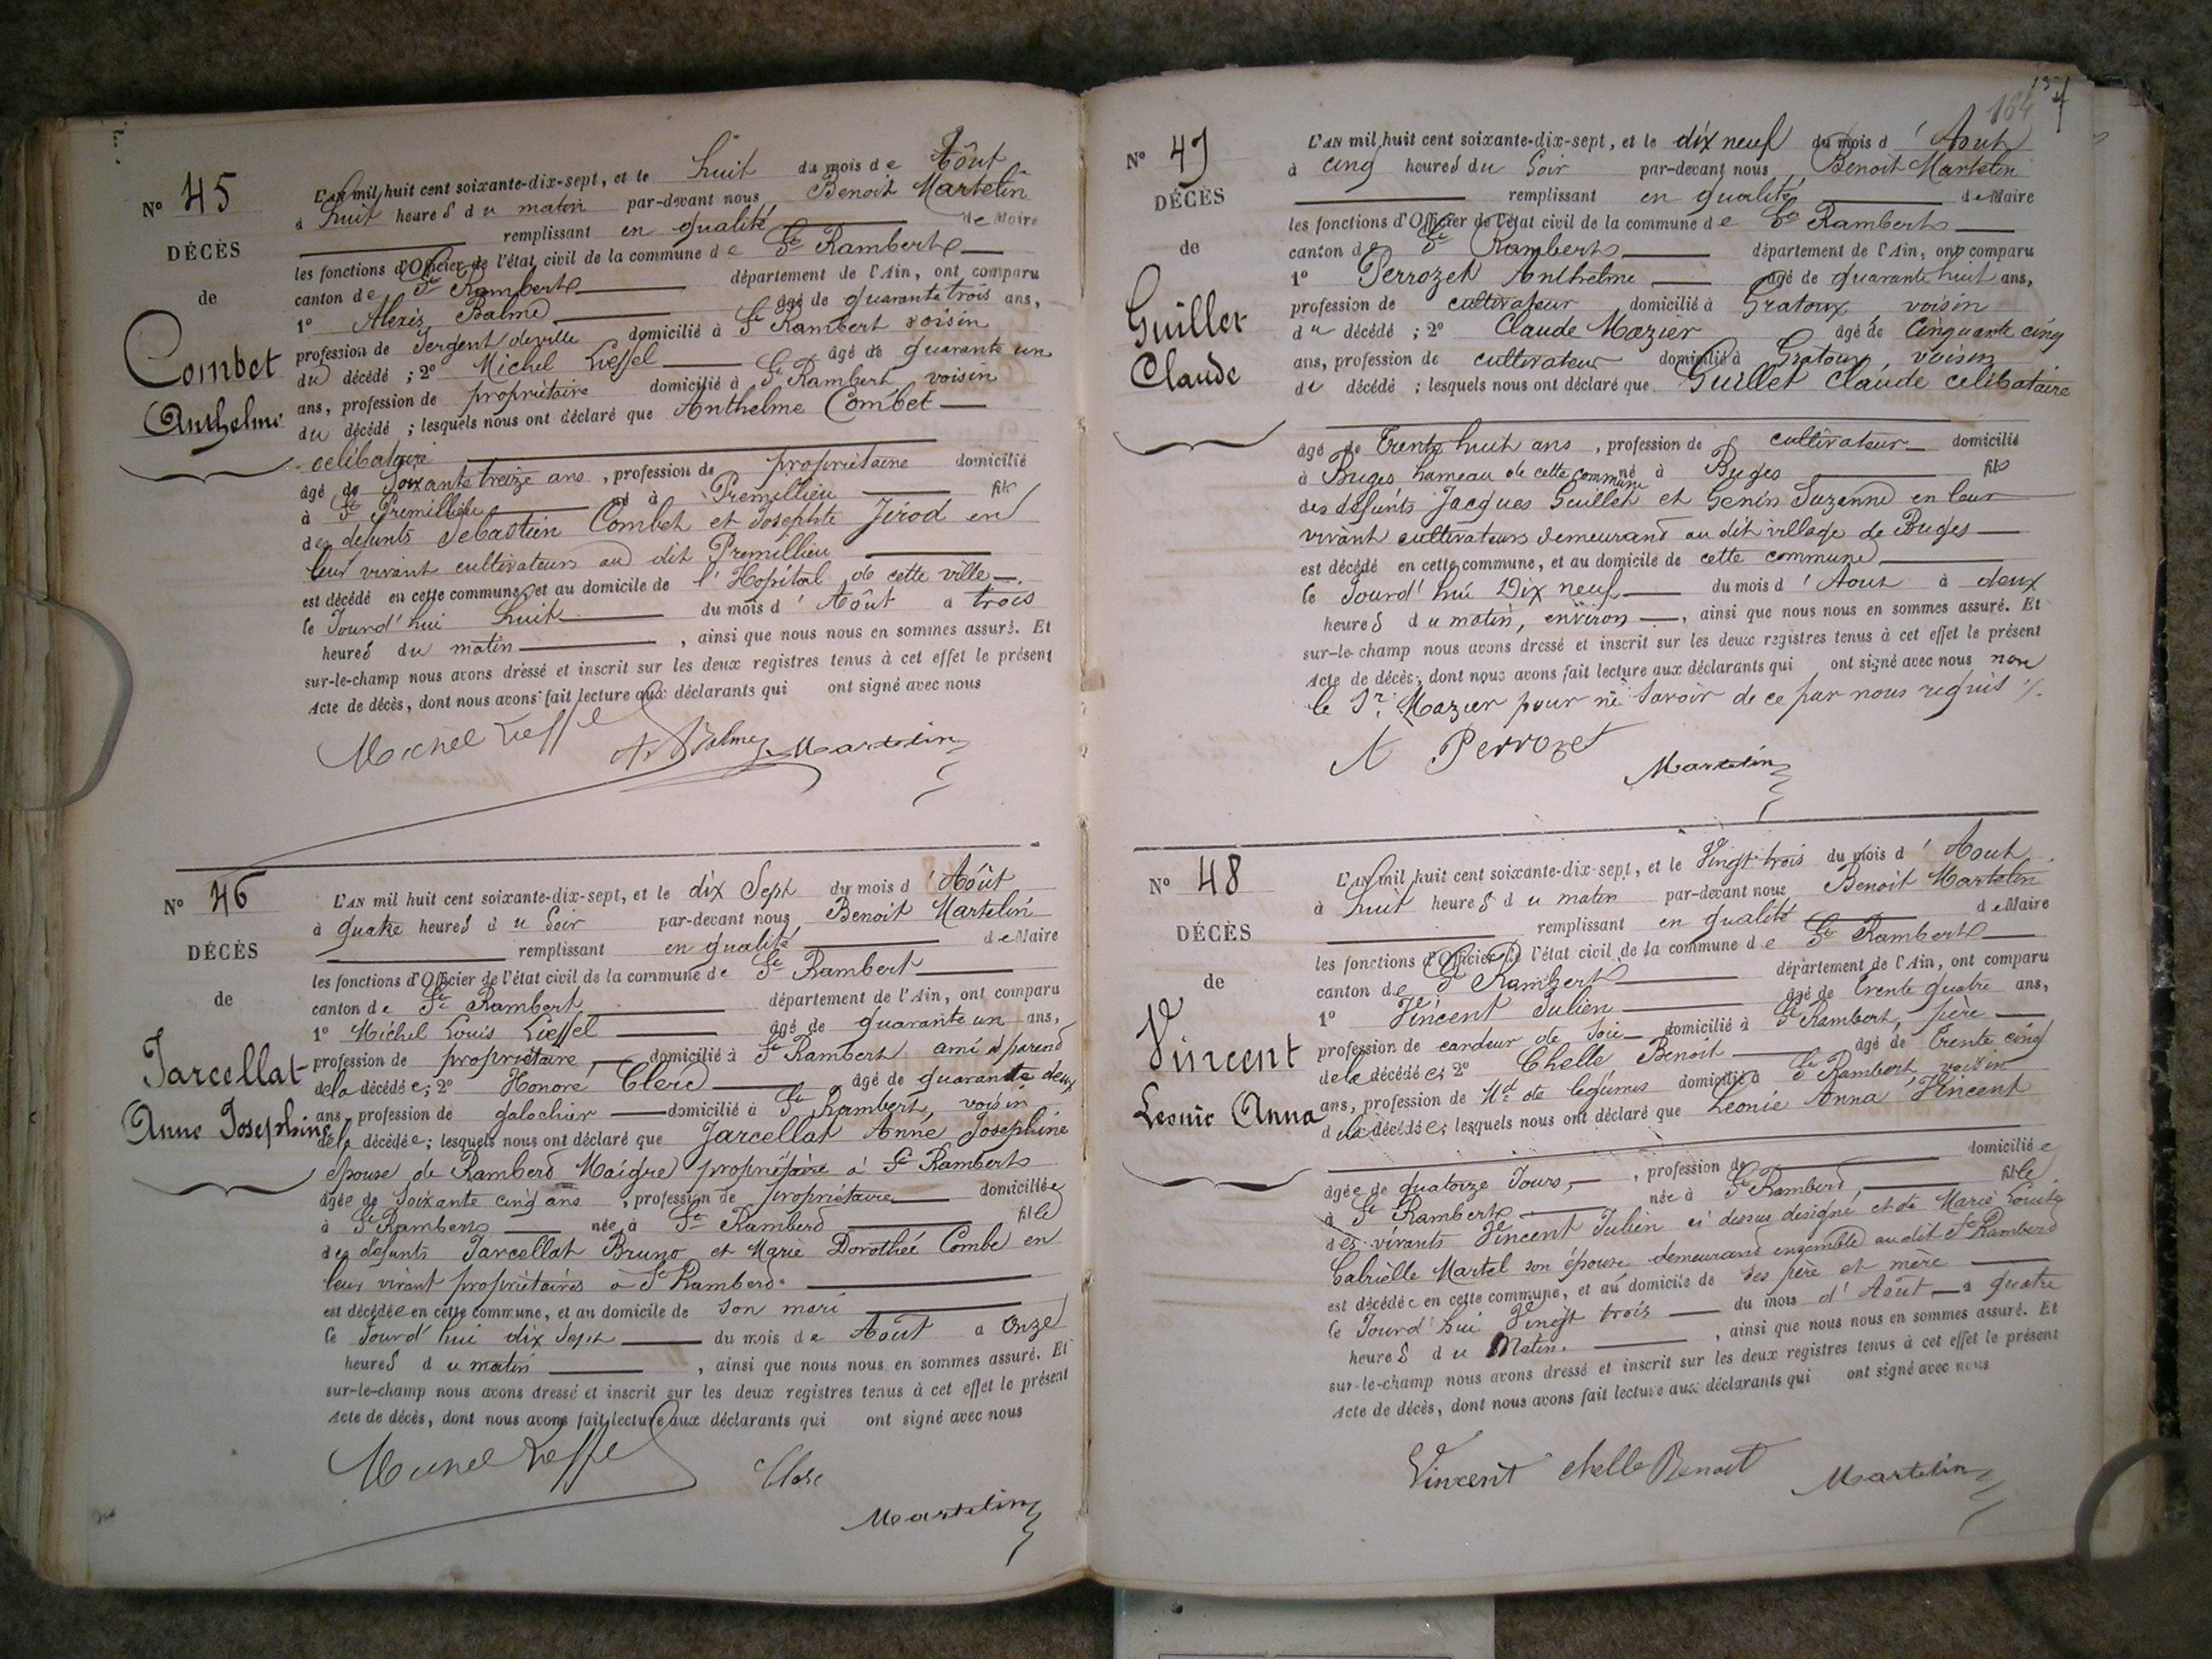 N° 45
DÉCÈS
de
Combet
Anthelme
L'AN mil huit cent soixante-dix-sept, et le huit du mois de Août
à huit heures du matin par-devant nous, Benoit Martelin
remplissant en qualité de Maire
les fonctions d'Officier de l'état civil de la commune de St Rambert
canton de St Rambert département de l'Ain, ont comparu
1° Alexis Balme âgé de quarante trois ans,
profession de Sergent de ville domicilié à St Rambert voisin
du décédé ; 2° Michel Lieffel âgé de quarante un
ans, profession de propriétaire domicilié à St Rambert voisin
du décédé ; lesquels nous ont déclaré que Anthelme Combet
célibataire
âgé de Soixante treize ans, profession de propriétaire domicilié
à St Premillieu né à Premillieu fils
des défunts Sebastien Combet et Josephte Jérod en
leur vivant cultivateurs au dit Premillieu
est décédé en cette commune, et au domicile de l'Hopital de cette ville
le Jourd'hui huit du mois d'Août à trois
heures du matin, ainsi que nous nous en sommes assuré. Et
sur-le-champ nous avons dressé et inscrit sur les deux registres tenus à cet effet le présent
Acte de décès, dont nous avons fait lecture aux déclarants qui ont signé avec nous
Michel Lieffel A. Balme Martelin
N° 46
DÉCÈS
de
Jarcellat
Anne Josephine
L'AN mil huit cent soixante-dix-sept, et le dix Sept du mois d'Août
à quatre heures du Soir par-devant nous, Benoit Martelin
remplissant en qualité de Maire
les fonctions d'Officier de l'état civil de la commune de St Rambert
canton de St Rambert département de l'Ain, ont comparu
1° Michel Louis Lieffel âgé de quarante un ans,
profession de propriétaire, domicilié à St Rambert ami
de la décédée ; 2° Honoré Clerc âgé de quarante deux
ans, profession de galochier domicilié à St Rambert, voisin
de la décédée ; lesquels nous ont déclaré que Jarcellat Anne Josephine
épouse de Rambert Maigre propriétaire à St Rambert
âgée de Soixante cinq ans, profession de propriétaire domiciliée
à St Rambert née à St Rambert fille
des défunts Jarcellat Bruno et Marie Dorothée Combe en
leur vivant propriétaires à St Rambert
est décédée en cette commune, et au domicile de son mari
le Jourd'hui dix Sept du mois de Août à Onze
heures du matin, ainsi que nous nous en sommes assuré. Et
sur-le-champ nous avons dressé et inscrit sur les deux registres tenus à cet effet le présent
Acte de décès, dont nous avons fait lecture aux déclarants qui ont signé avec nous
Michel Lieffel Clerc
Martelin
164
N° 47
DÉCÈS
de
Guillet
Claude
L'AN mil huit cent soixante-dix-sept, et le dix neuf du mois d'Aout
à cinq heures du Soir par-devant nous, Benoit Martelin
remplissant en qualité de Maire
les fonctions d'Officier de l'état civil de la commune de St Rambert
canton de St Rambert département de l'Ain, ont comparu
1° Perrozet Anthelme âgé de quarante huit ans,
profession de cultivateur domicilié à Gratoux voisin
du décédé ; 2° Claude Mazier âgé de Cinquante cinq
ans, profession de cultivateur domicilié à Gratoux, voisin
du décédé ; lesquels nous ont déclaré que Guillet Claude célibataire
âgé de Trente huit ans, profession de cultivateur domicilié
à Buges hameau de cette commune né à Buges fils
des défunts Jacques Guillet et Genin Suzanne en leur
vivant cultivateurs demeurant au dit village de Buges
est décédé en cette commune, et au domicile de cette commune
le Jourd'hui Dix neuf du mois d'Aout à deux
heures du matin, environ, ainsi que nous nous en sommes assuré. Et
sur-le-champ nous avons dressé et inscrit sur les deux registres tenus à cet effet le présent
Acte de décès, dont nous avons fait lecture aux déclarants qui ont signé avec nous non
le Sr. Mazier pour ne savoir de ce par nous requis
A Perrozet
Martelin
N° 48
DÉCÈS
de
Vincent
Leonie Anna
L'AN mil huit cent soixante-dix-sept, et le Vingt trois du mois d'Aout
à huit heures du matin par-devant nous Benoit Martelin
remplissant en qualité de Maire
les fonctions d'Officier de l'état civil de la commune de St Rambert
canton de St Rambert département de l'Ain, ont comparu
1° Vincent Julien âgé de Trente quatre ans,
profession de cardeur de Soie domicilié à St Rambert, père
de la décédée ; 2° Chelle Benoit âgé de Trente cinq
ans, profession de Md de légumes domicilié à St Rambert voisin
de la décédée ; lesquels nous ont déclaré que Leonie Anna Vincent
âgée de quatorze Jours, profession de domiciliée
à St Rambert née à St Rambert fille
des vivants Vincent Julien ci dessus designé et de Marie Louise
Gabrielle Martel son épouse demeurant ensemble au dit St Rambert
est décédée en cette commune, et au domicile de ses père et mère
le Jourd'hui Vingt trois du mois d'Août à quatre
heures du Matin, ainsi que nous nous en sommes assuré. Et
sur-le-champ nous avons dressé et inscrit sur les deux registres tenus à cet effet le présent
Acte de décès, dont nous avons fait lecture aux déclarants qui ont signé avec nous
Vincent chelle Benoit Martelin